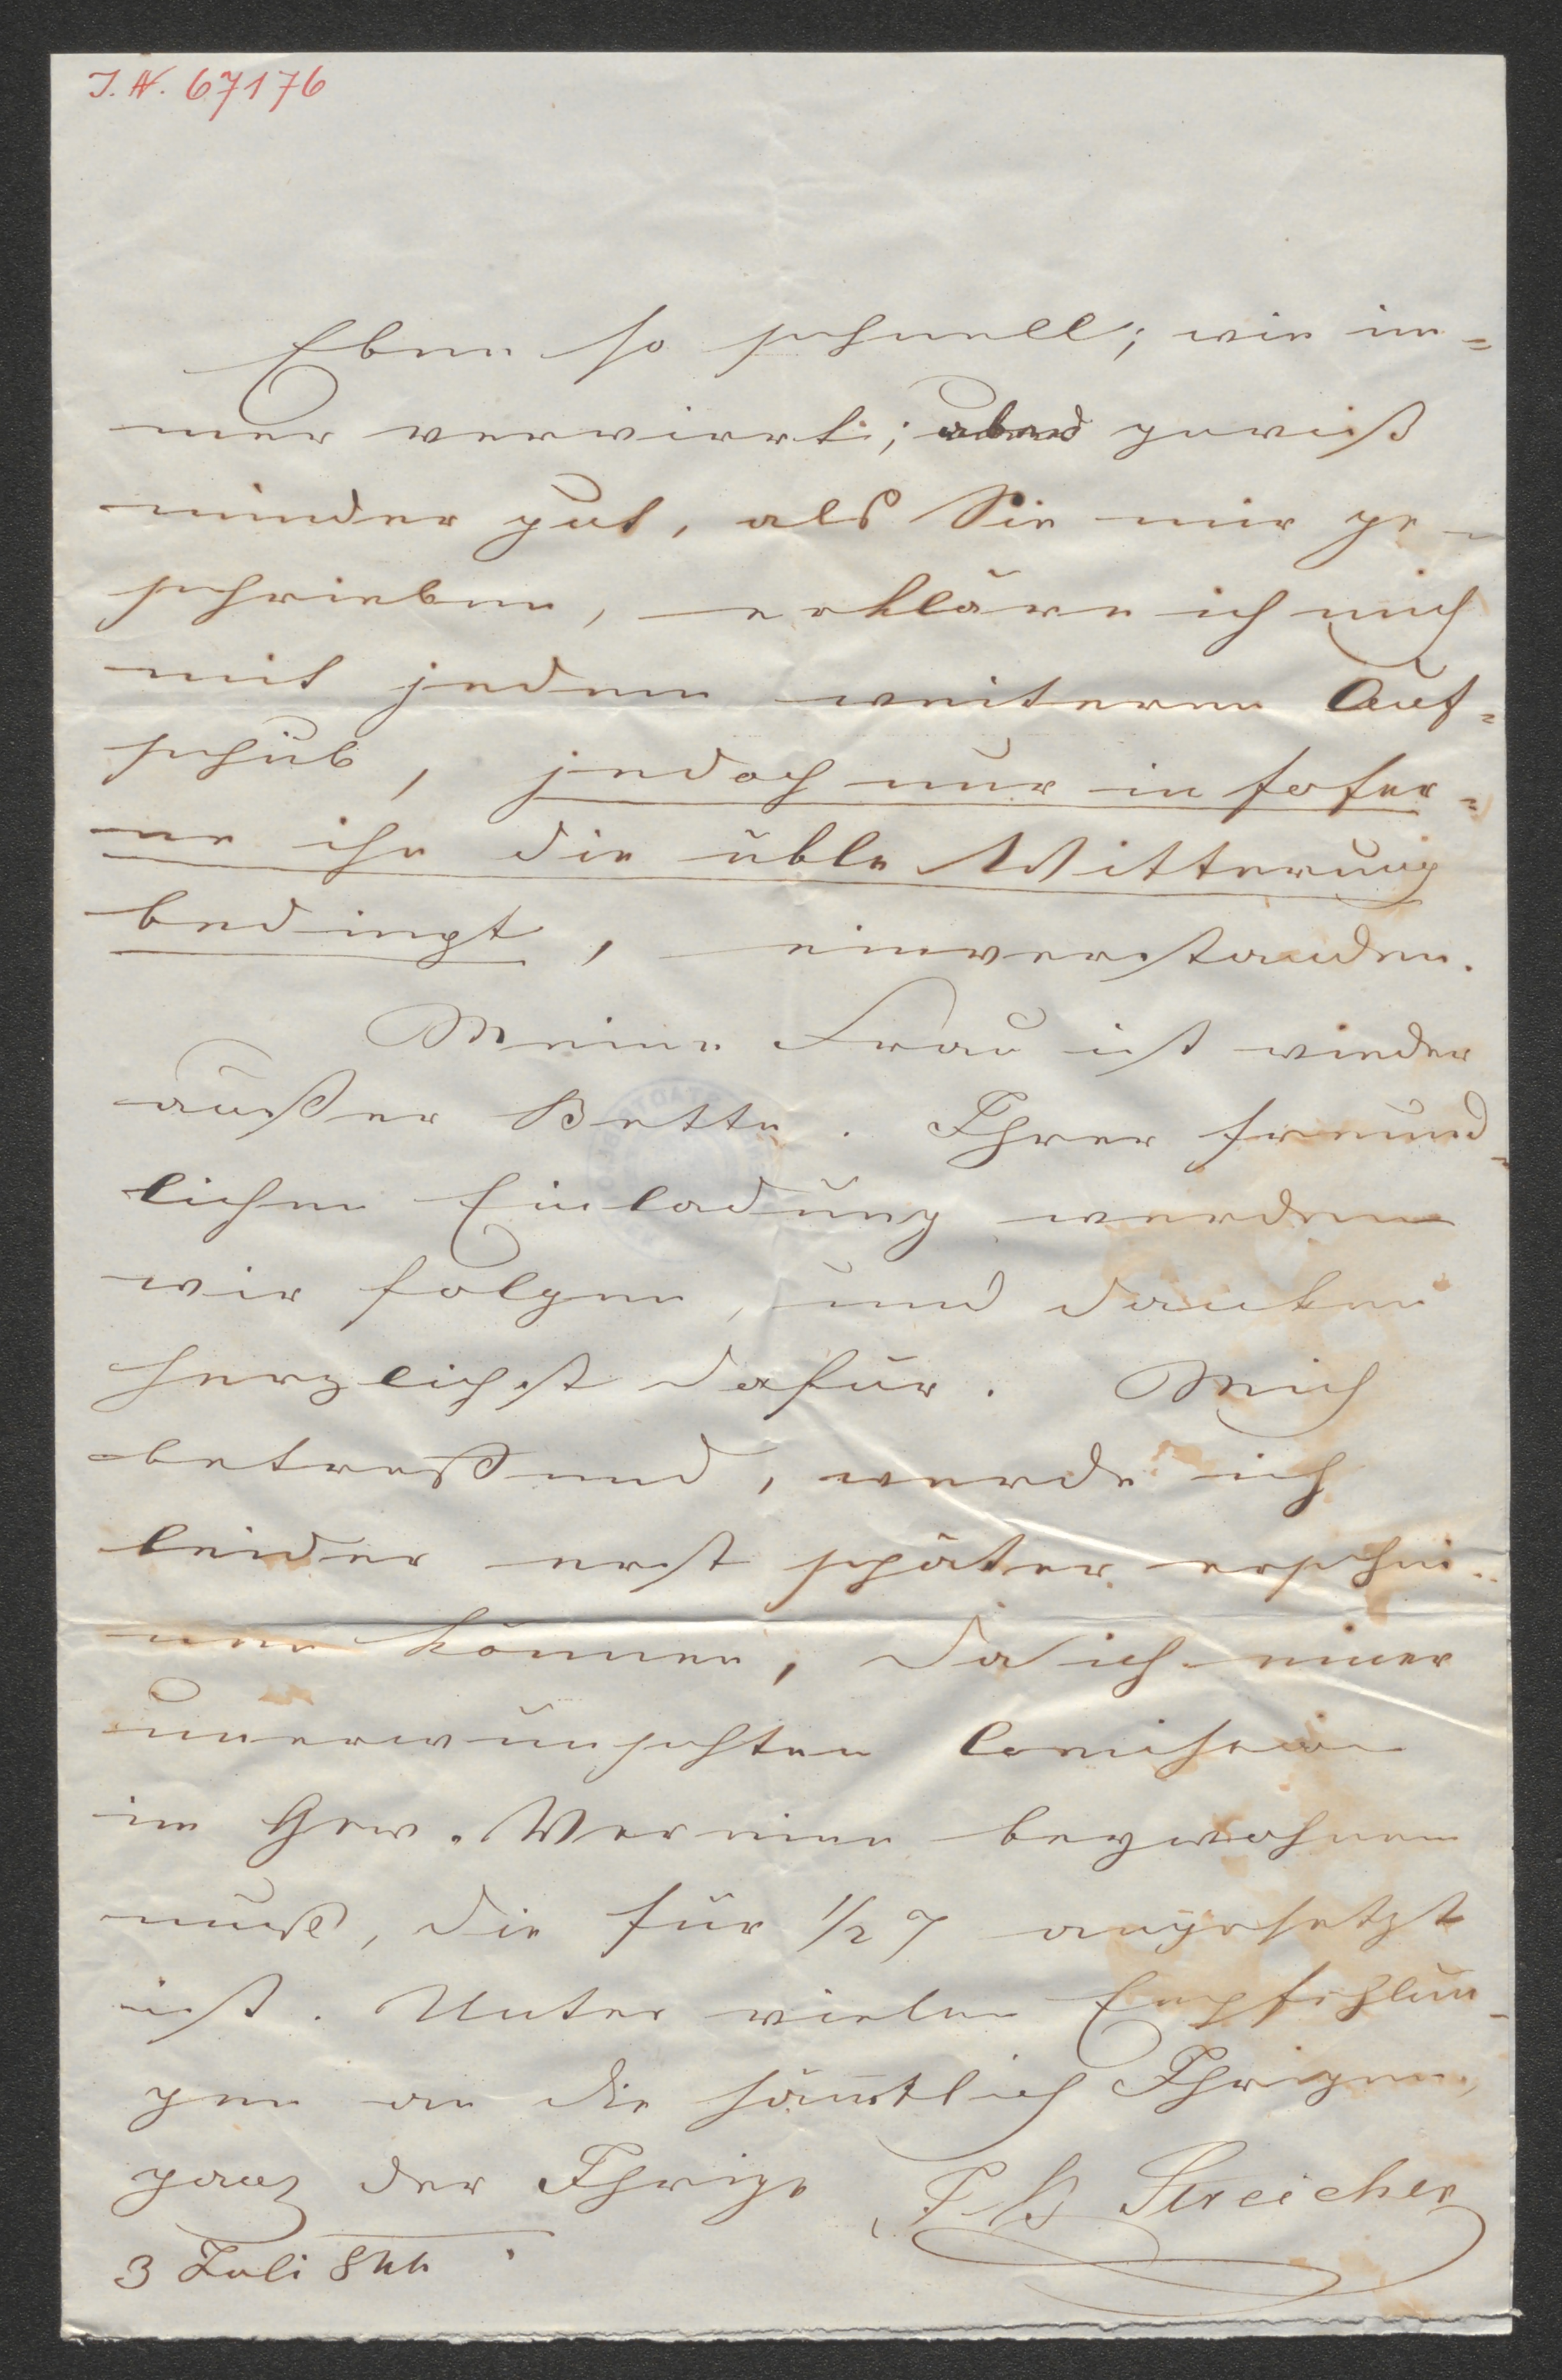 I.N. 67176
Eben so schnell; wie im=
mer verwirrt; aber gewiß
minder gut, als Sie mir ge-
schrieben, erkläre ich mich
mit jedem weiteren Auf=
schub, jedoch nur in sofer=
ne ihn die üble Witterung
bedingt, einverstanden.
Meine Frau ist wieder
außer Bette. Ihrer freund-
lichen Einladung werden
wir folgen, und danken
herzlichst dafür. Mich
betreffend, werde ich
leider erst später erschei-
nen können, da ich einer
unerwünschten Comission
im Gew. Vereine beywohnen
muß, die für 1/2 7 angesetzt
ist. Unter vielen Empfehlun-
gen an die sämtlich Ihrigen,
ganz der Ihrige Streicher
3 Juli 844